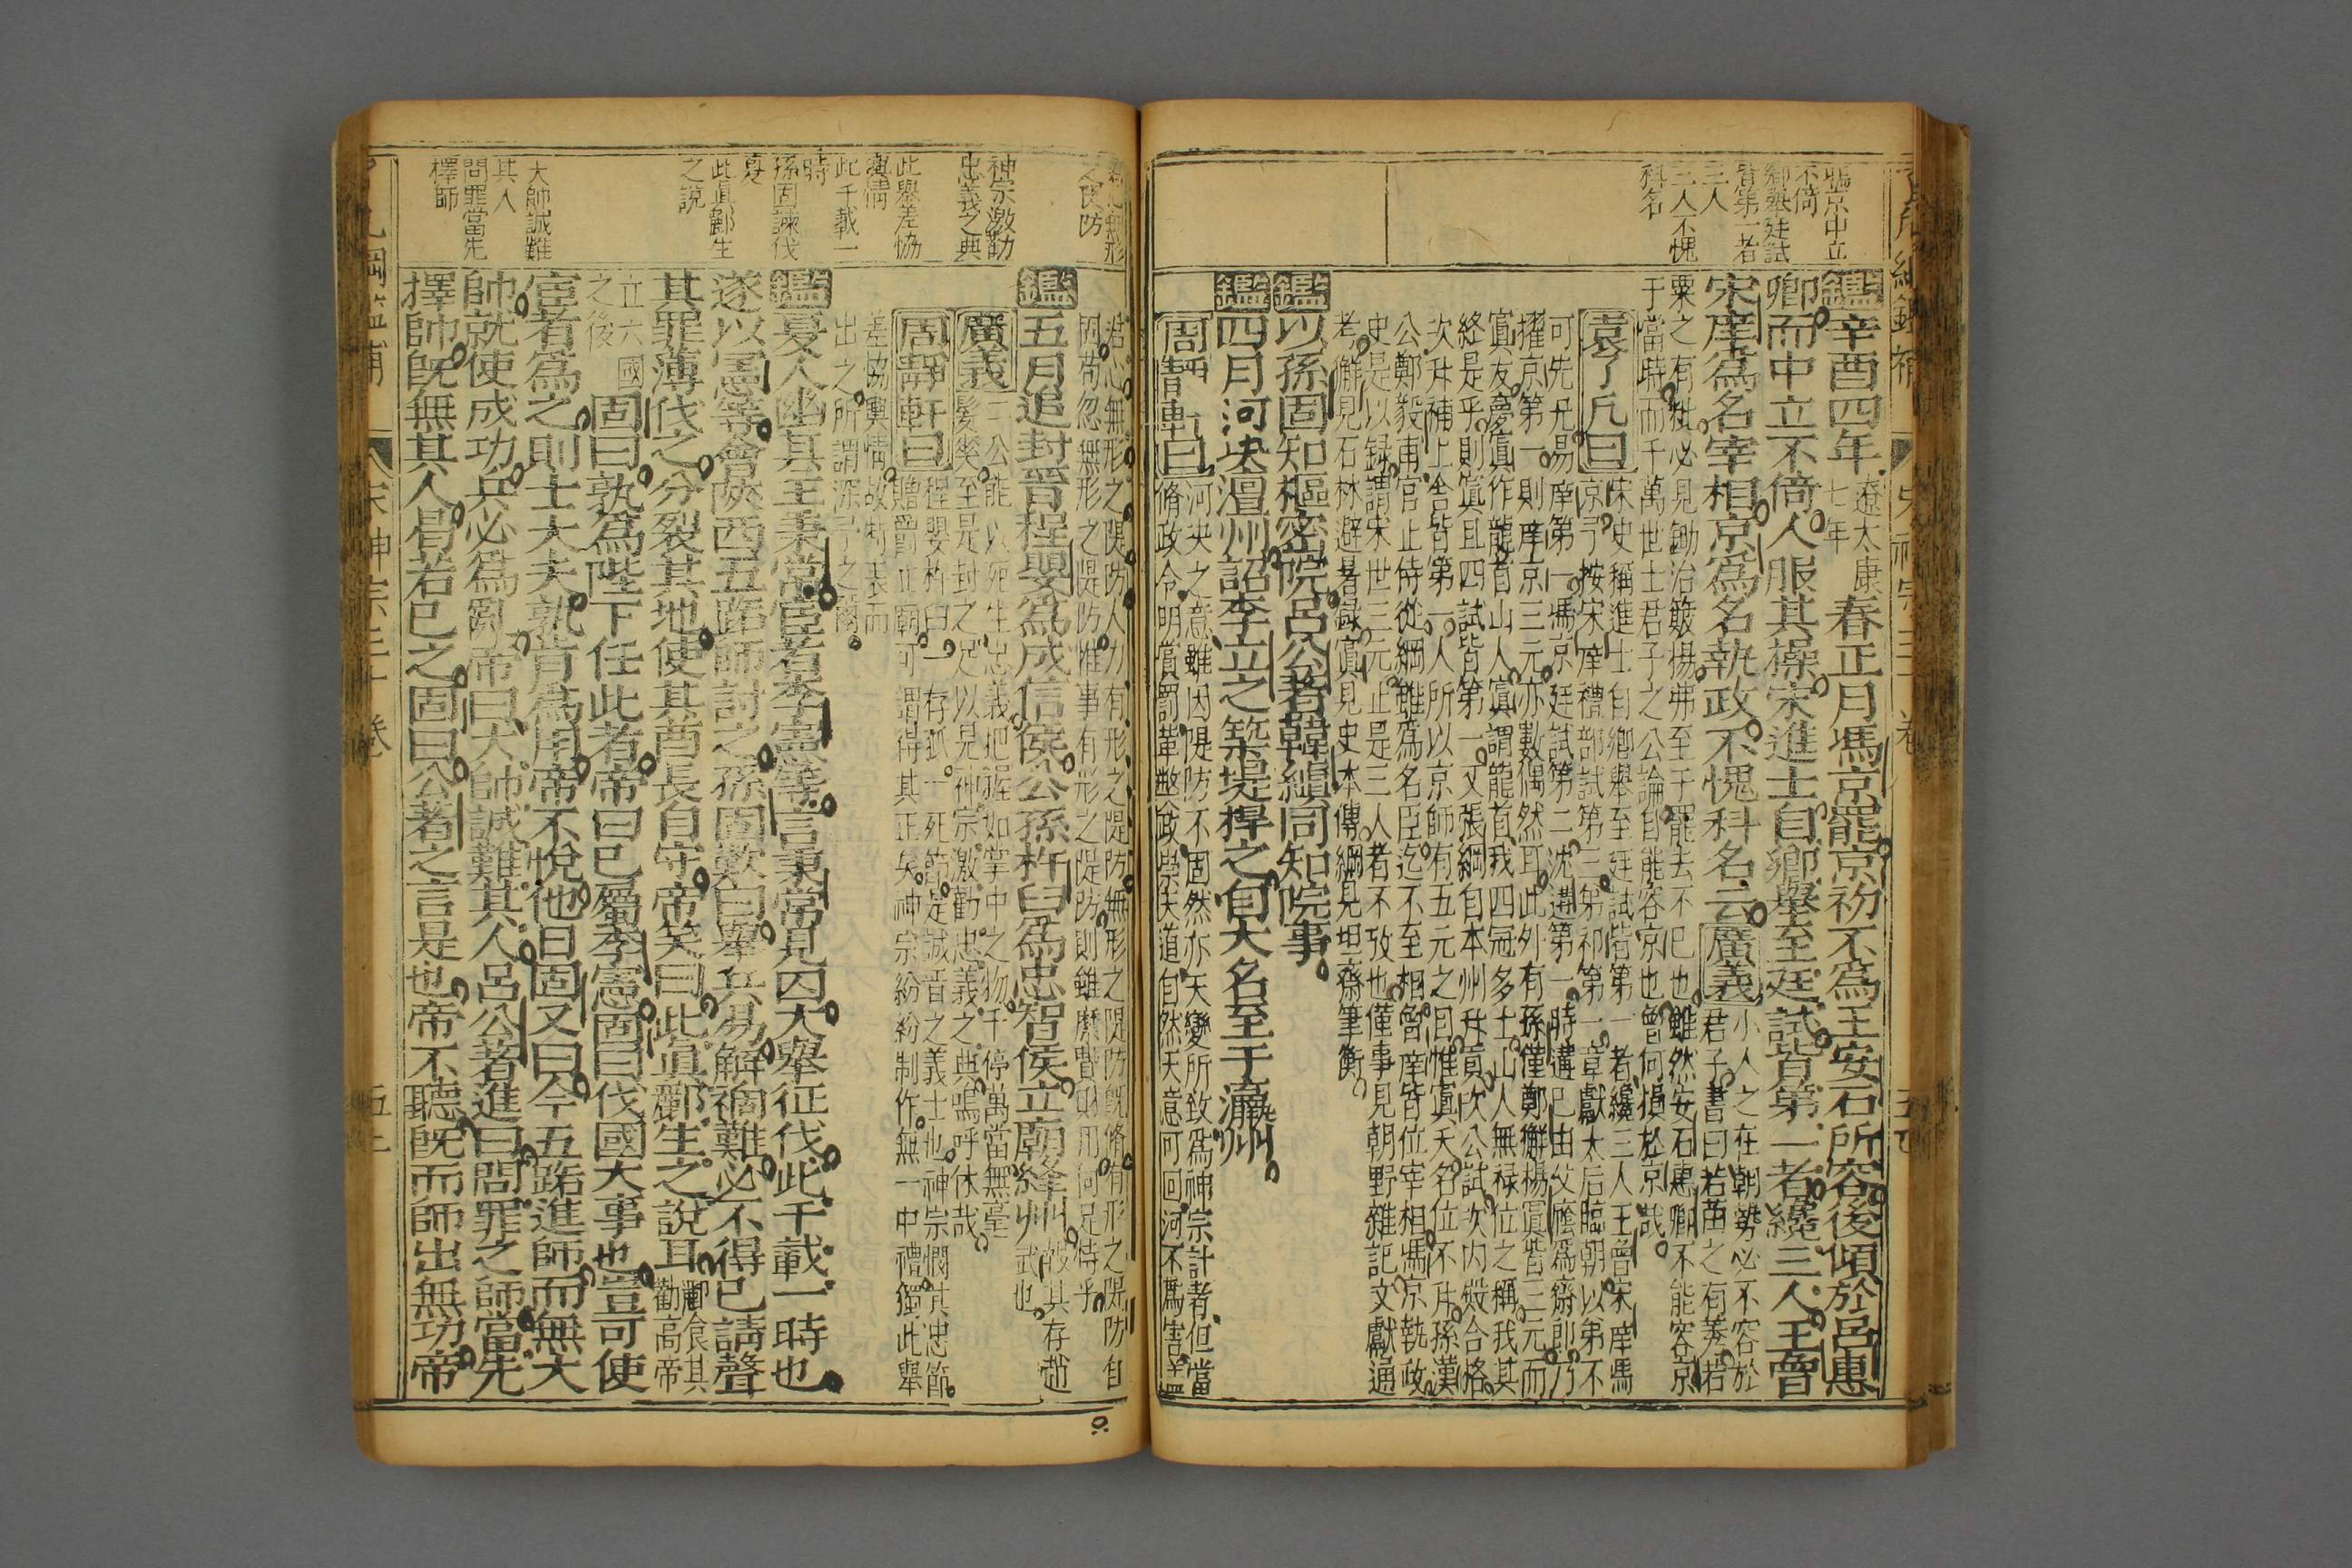 馮京中立
不倚
鄉舉廷試
皆第一者
三人
三人不愧
科名
鑑辛酉四年遼太康七年春正月馮京罷京初不為王安石所容後傾於呂惠
卿而中立不倚人服其操宋進士自鄉舉至廷試皆第一者纔三人王曾
宋庠為名宰相京為名執政不愧科名云廣義小人之在朝勢必不容於君子書曰若苗之有莠若
粟之有秕必見鋤治簸揚弗至于罷去不已也雖然安石惠卿不能容京
于當時而千萬世士君子之公論自能容京也曾何損於京哉
袁了凡曰宋史稱進士自鄉舉至廷試皆第一者纔三人王曾宋庠馮
京予按宋庠禮部試第三第祁第一章獻太后臨朝以弟不
可先兄易庠第一馮京廷試第二沈遘第一時遘已由父廕為齋郎乃
擢京第一則庠京三元亦數偶然耳此外有孫僅鄭獬楊寘皆三元而
寘友慶寘作龍首山人寘謂龍首我四冠多士山人無祿位之稱我其
終是乎則寘且四試皆第一又張綱自本州升貢次公試次內殿合格
次升補上舍皆第一人所以京師有五元之目惟寘天名位不升孫漢
公鄭毅甫官止侍從綱雖為名臣迄不至相曾庠皆位宰相馮京執政
史是以錄謂宋世三元止是三人者不攷也僅事見朝野雜記文獻通
考獬見石林避暑錄寘見史本傳綱見坦齋筆衡
鑑以孫固知樞密院呂公著韓縝同知院事
鑑四月河決澶州詔李立之築堤捍之自大名至于瀛州
周靜軒曰河決之意雖因隄防不固然亦天變所致為神宗計者但當
脩政令明賞罰革弊政學
天道自然天意可回河不為害
神宗激勸
忠義之典
此舉差恊
輿情
此千載一
時
孫固諫伐
夏
此真酈生
之說
大帥誠難
其人
問罪當先
擇師
浩心無形之隄防人力有形之隄防無形之隄防既脩有形之隄防自
固苟忽無形之隄防惟事有形之隄防則雖糜費財用何足恃乎
鑑五月追封晉程嬰為成信侯公孫杵臼為忠智侯立廟絳州報其存趙武也
廣義二公能以死生忠義把握如掌中之物千停萬當無毫
髮爽至是封之足以見神宗激勸忠義之典嗚呼休哉
周靜軒曰程嬰杵臼一存孤一死節是誠晉之義士也神宗憫其忠節
贈爵立廟可謂得其正矣神宗紛紛制作無一中禮獨此舉
差恊輿情故特表而
出之所謂深予之爾
鑑夏人幽其主秉常宦者李憲等言秉常見囚大舉征伐此千載一時也
遂以憲等會陝西五路師討之孫固數曰舉兵易解禍難必不得已請聲
其罪薄伐之分裂其地使其酋長自守帝笑曰此真酈生之說耳酈食其勸高帝
立六國之後固曰孰為陛下任此者帝曰已屬李憲固曰伐國大事也豈可使
宦者為之則士大夫孰肯為用帝不悅他日固又曰今五路進師而無大
帥就使成功兵必為亂帝曰大帥誠難其人呂公著進曰問罪之師當先
擇帥既無其人曷若已之固曰公著之言是也帝不聽既而師出無功帝